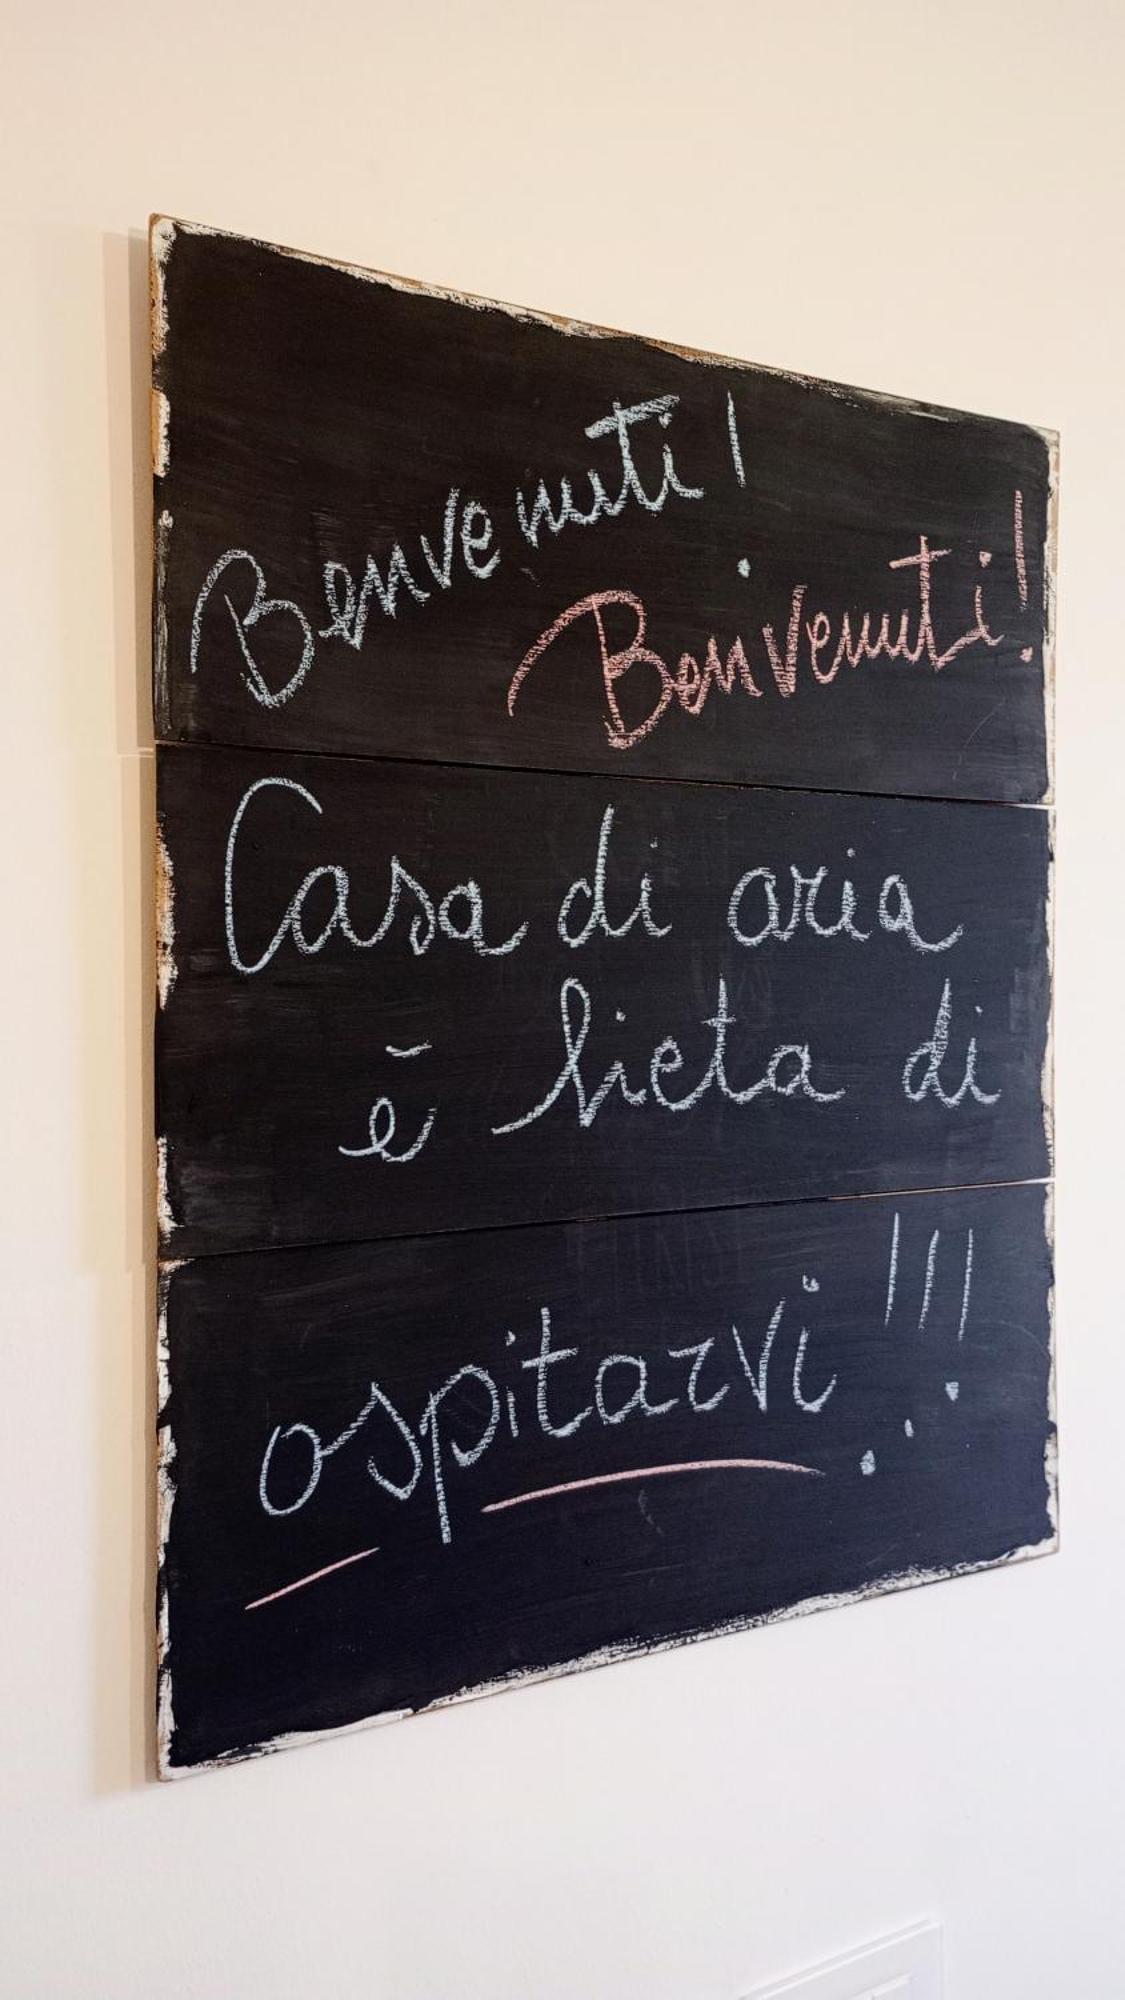 Benvenuti!
Benvenuti!
Casa di aria
è lieta di
ospitarvi!!!